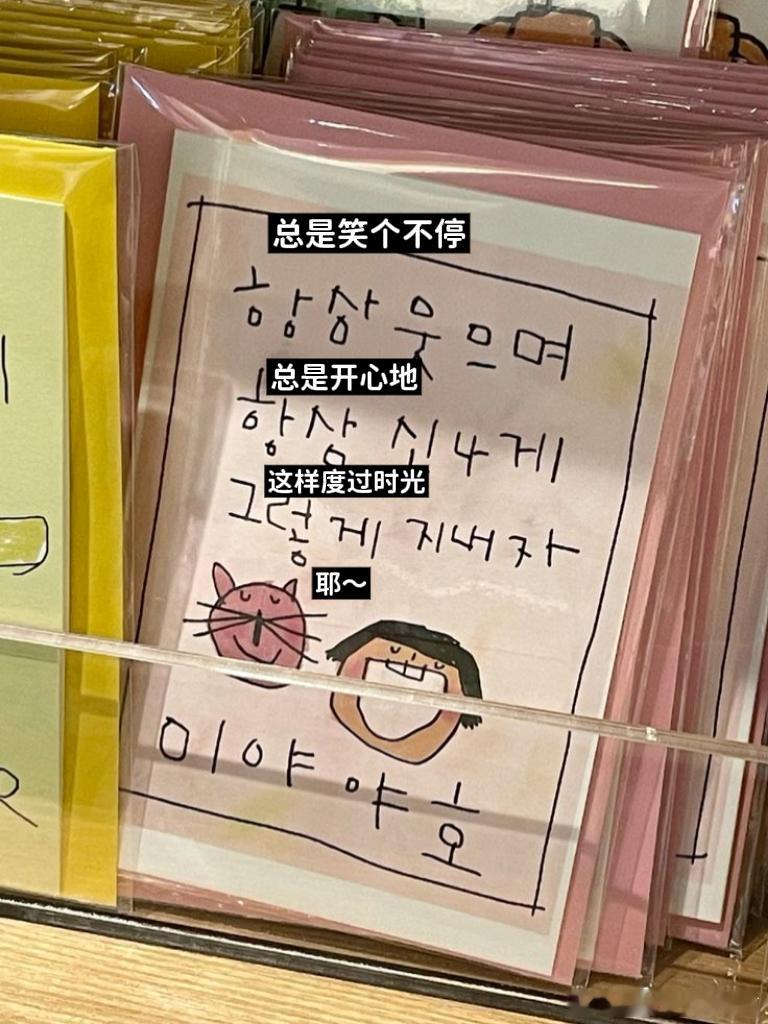 总是笑个不停
항상 웃으며
总是开心地
항상 신나게
这样度过时光
그렇게 지내자
耶～
이야 야호